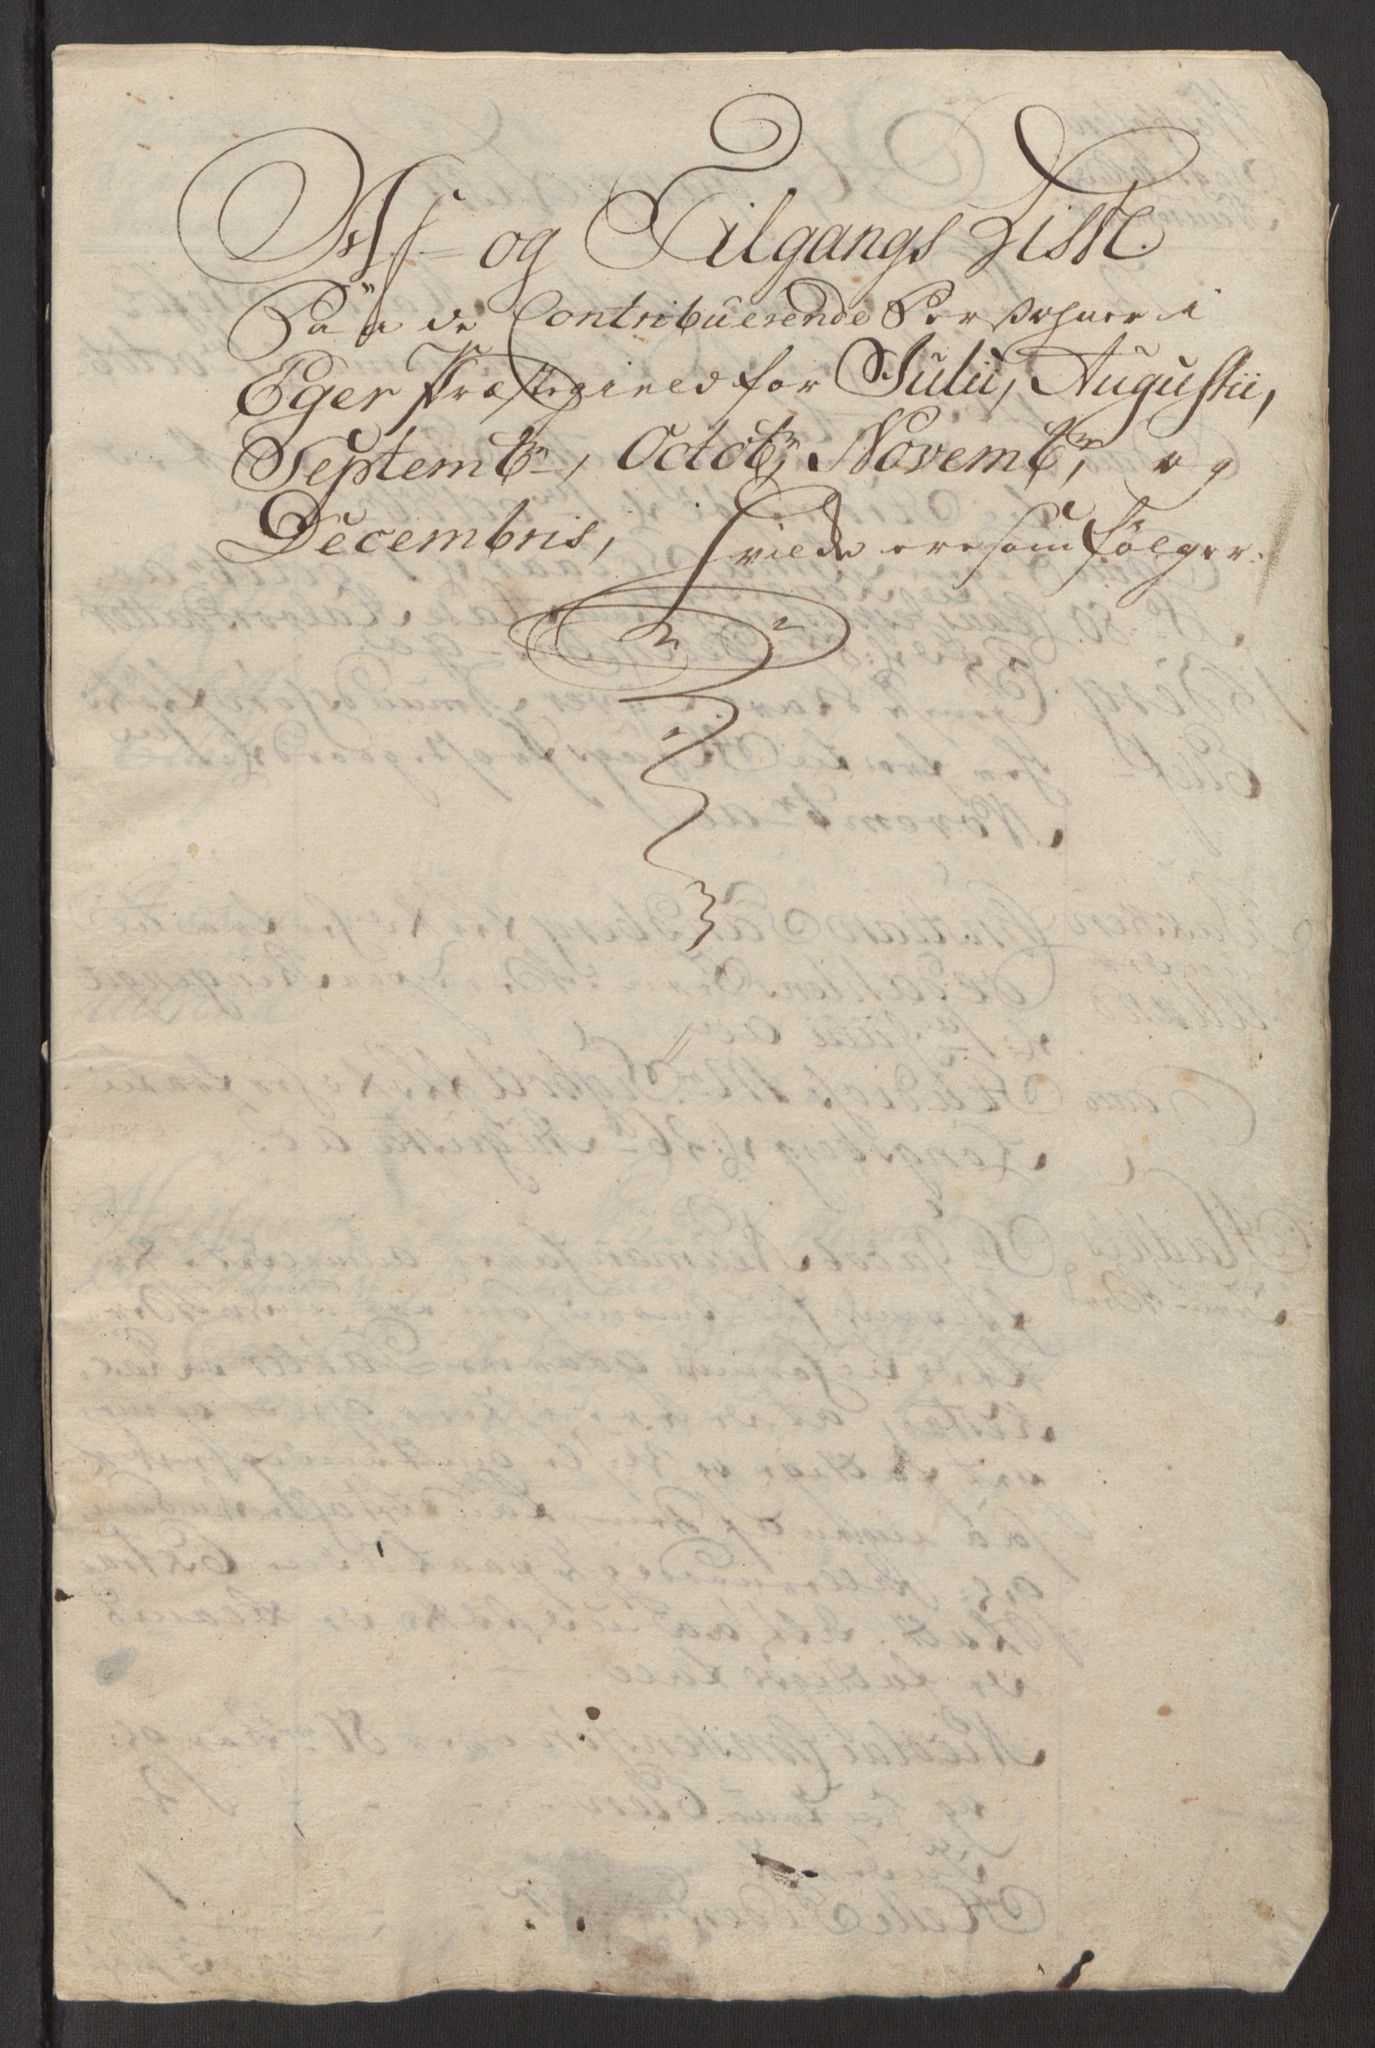 Af- og Tilgangs List
Paa de Contribuerende Persohner i
Eger Præstegield for Julii, Augustii,
Septembr, Octobr, Novembr, og
Decembris, hvilde ere som følger.